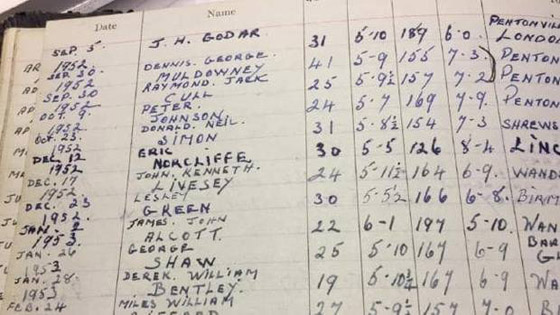 Date Name
PENTONVIL
SEP. 5 J. H. GODAR 31 5-10 189 6-0. LONDON
1952 DENNIS. GEORGE. 41 5-9 155 7-3. PENTON
SEP 30. MULDOWNEY
1952 RAYMOND. JACK 25 5-9½ 157 7-2 PENTON
SEP. 30 CULL
1952 PETER. 24 5-7 169 4-9. PENTON
OCT. 9. JOHNSON
1952 DONALD. NEIL. 31 5-8½ 154 7-3 SHREWS
OCT. 23. SIMON
1952 ERIC. 30 5-5 126 8-4 LINC
DEC. 12 NORCLIFFE
1952 JOHN. KENNETH. 24 5-11½ 164 6-9. WAND
DEC. 17 LIVESEY
1952 LESLEY 30 5-5½ 166 6-8. BIRM
DEC. 23 GREEN
1952. JAMES. JOHN 22 6-1 197 5-10. WAN
JAN. 2 ALCOTT.
1953. GEORGE 25 5-10 167 6-9
JAN. 26 SHAW
1953 DEREK. WILLIAM 19 5-10½ 167 6-9 WA
JAN. 28. BENTLEY.
1953 MILES WILLIAM 27 5-9½ 157 7-0
FEB. 24